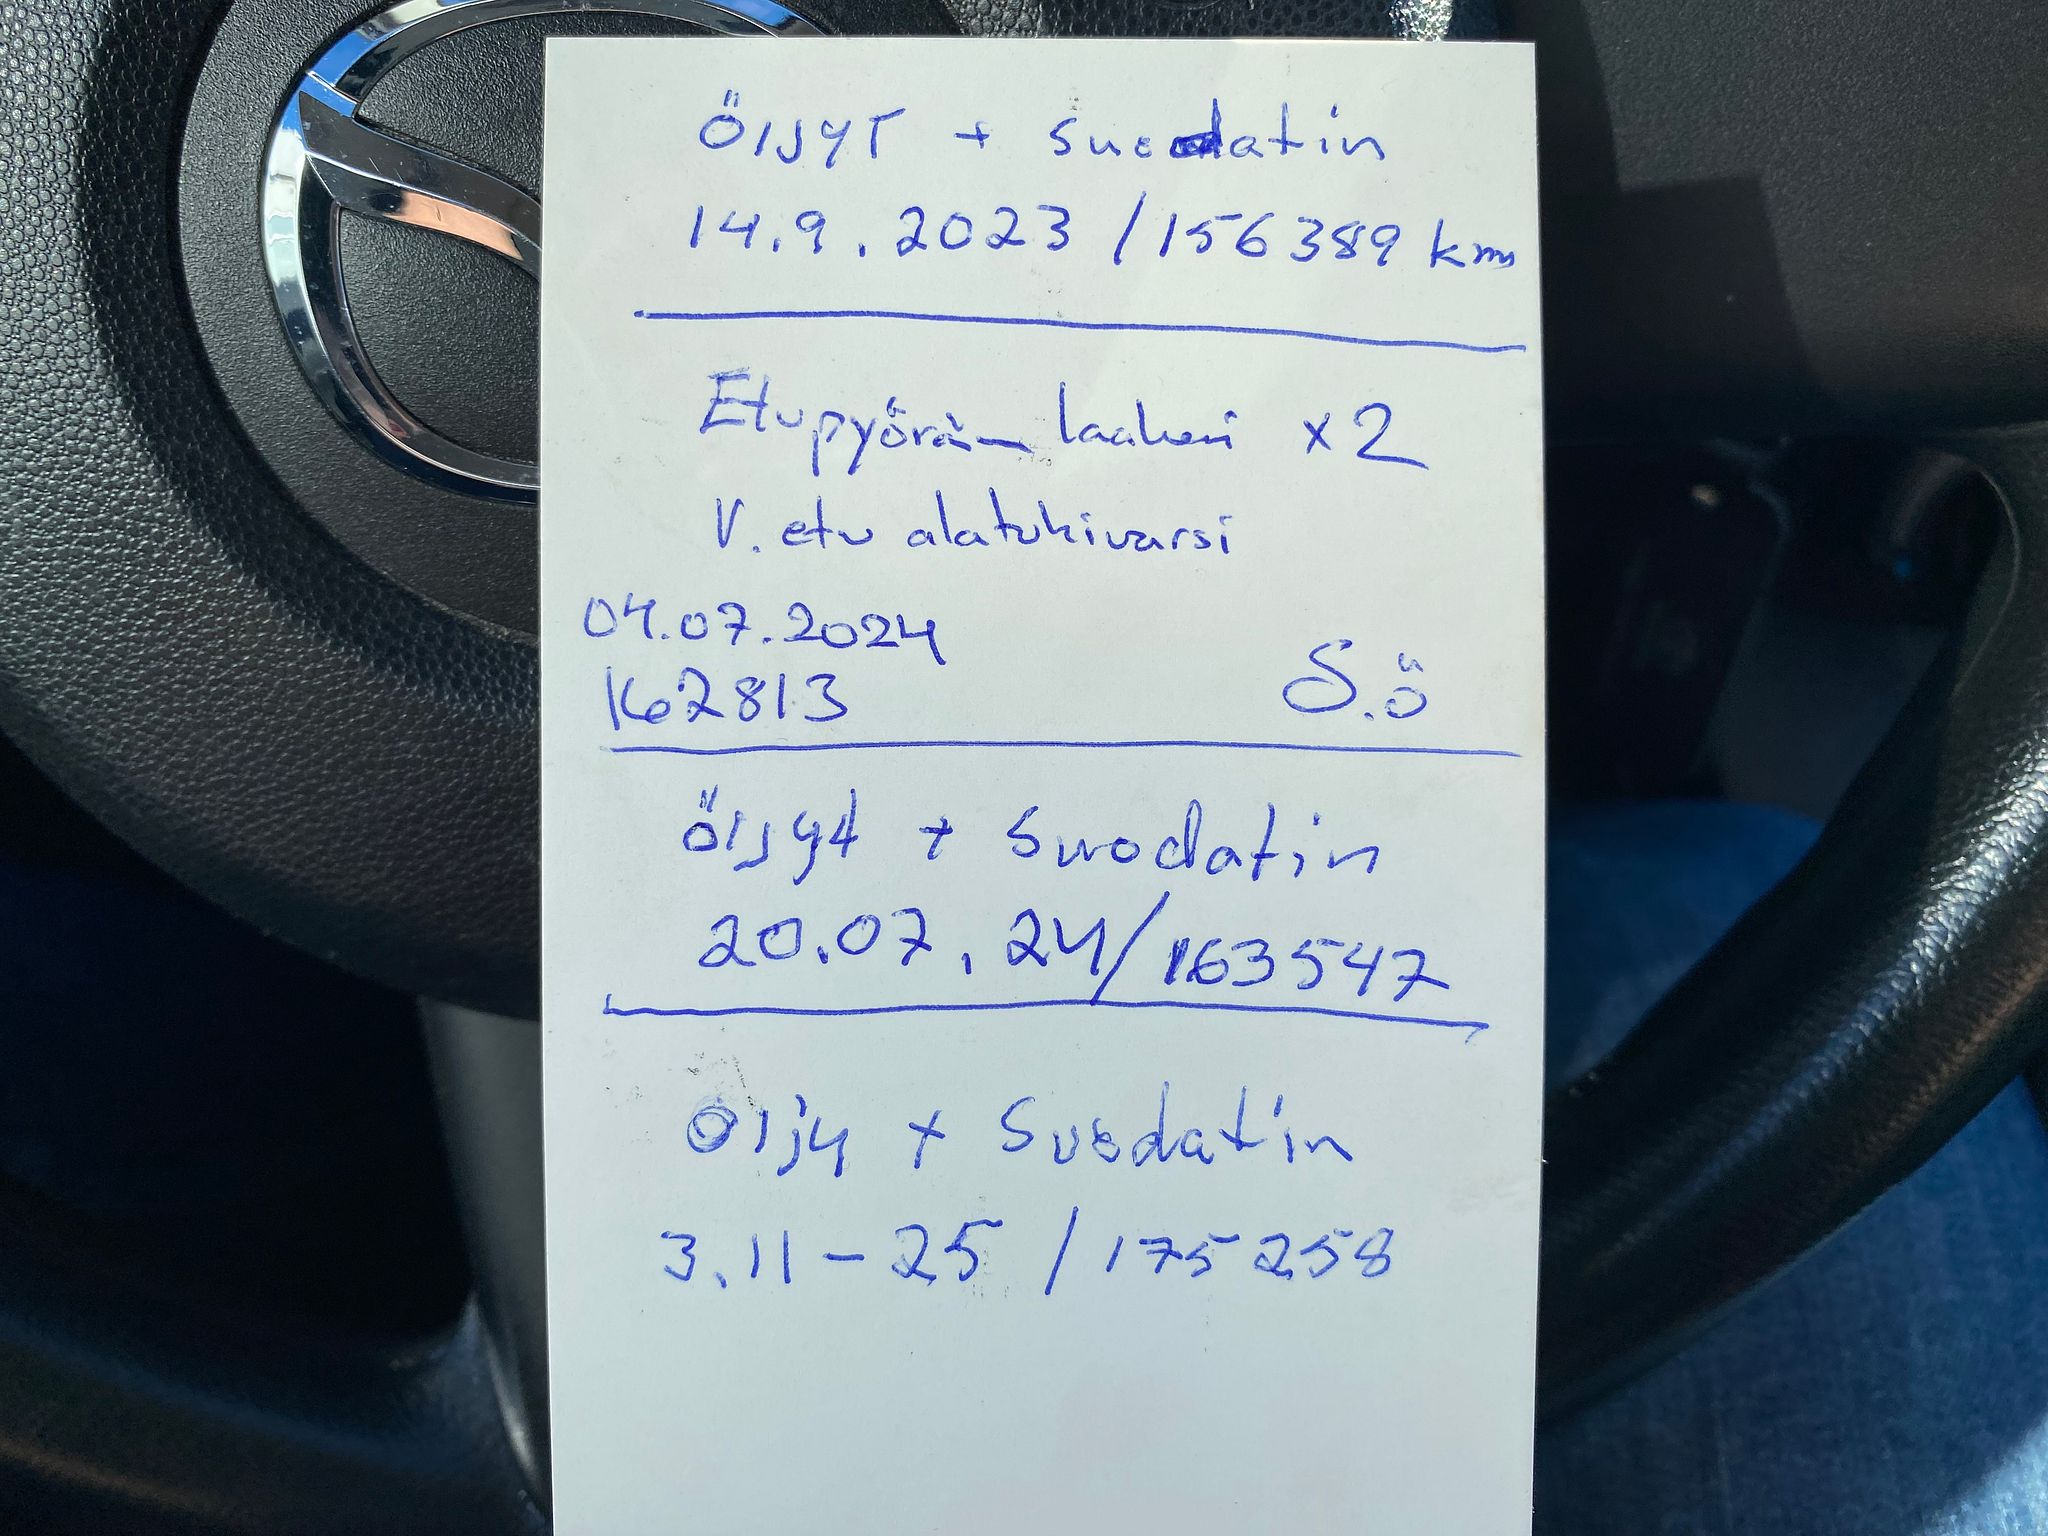 Öljyt + suodatin
14.9.2023 / 156389 km
Etupyörän laakeri x2
V. etu alatukivarsi
04.07.2024
162813 S.Ö
Öljyt + Suodatin
20.07.24/163547
Öljy + Suodatin
3.11-25 / 175258